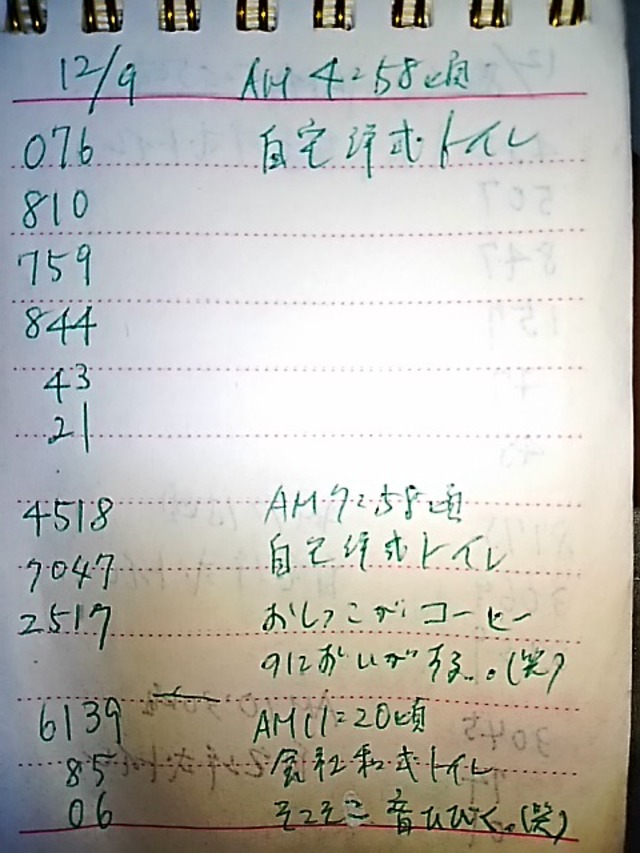 12/9 AM 4=58頃
076 自宅洋式トイレ
810
759
844
43
21
4518 AM7=58頃
7047 自宅洋式トイレ
2517 おしっこがコーヒー
のにおいがする。。(笑)
6139 AM11=20頃
85 会社和式トイレ
06 そこそこ音ひびく。(笑)